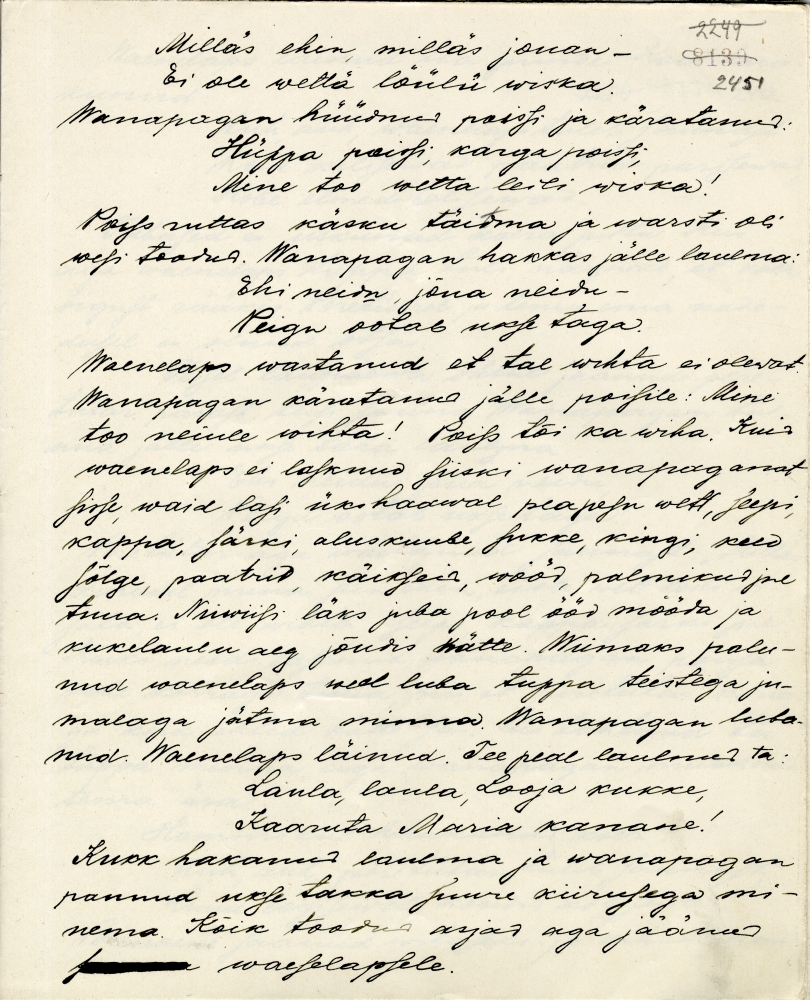 2249
8139
2451
Milläs ehin, milläs jõuan –
Ei ole wettä löülü wiska.
Wanapagan hüüdnud poissi ja käratanud:
Hüppa poissi, karga poissi,
Mine too wetta leili wiska!
Poiss ruttas käsku täidma ja warsti oli
wesi toodud. Wanapagan hakkas jälle laulma:
Ehi neidu, jõua neidu –
Peigu ootab ukse taga.
Waenelaps wastanud et tal wihta ei olewat.
Wanapagan käratanud jälle poisile: Mine
too neiule wihta! Poiss tõi ka wiha. Kuid
waenelaps ei lasknud siiski wanapaganat
sisse, waid lasi ükshaawal peapesu wett, seepi,
kappa, särki, aluskuube, sukke, kingi, keed
sõlge, paatrid, käikseid, wööd, palmikud jne
tuua. Niiwiisi läks juba pool ööd mööda ja
kukelaulu aeg jõudis kätte. Wiimaks palu-
nud waenelaps weel luba tuppa teistega ju-
malaga jätma minna. Wanapagan luba-
nud. Waenelaps läinud. Tee peal laulnud ta:
Laula, laula, Looja kukke,
Kaaruta Maria kanane!
Kukk hakanud laulma ja wanapagan
pannud ukse takka suure kiirusega mi-
nema. Kõik toodud asjad aga jäänud
waeselapsele.